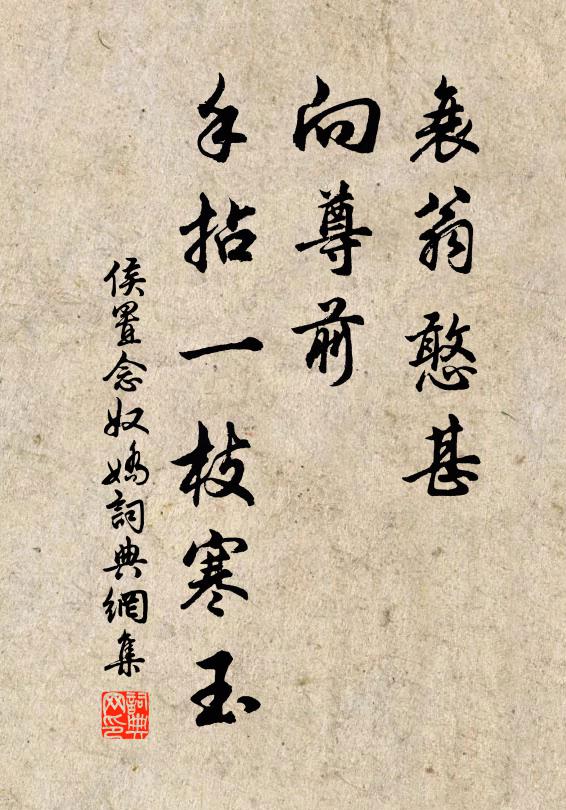 衰翁憨甚
向尊前
手拈一枝寒玉
侯置念奴嬌詞典網集
詞典网印